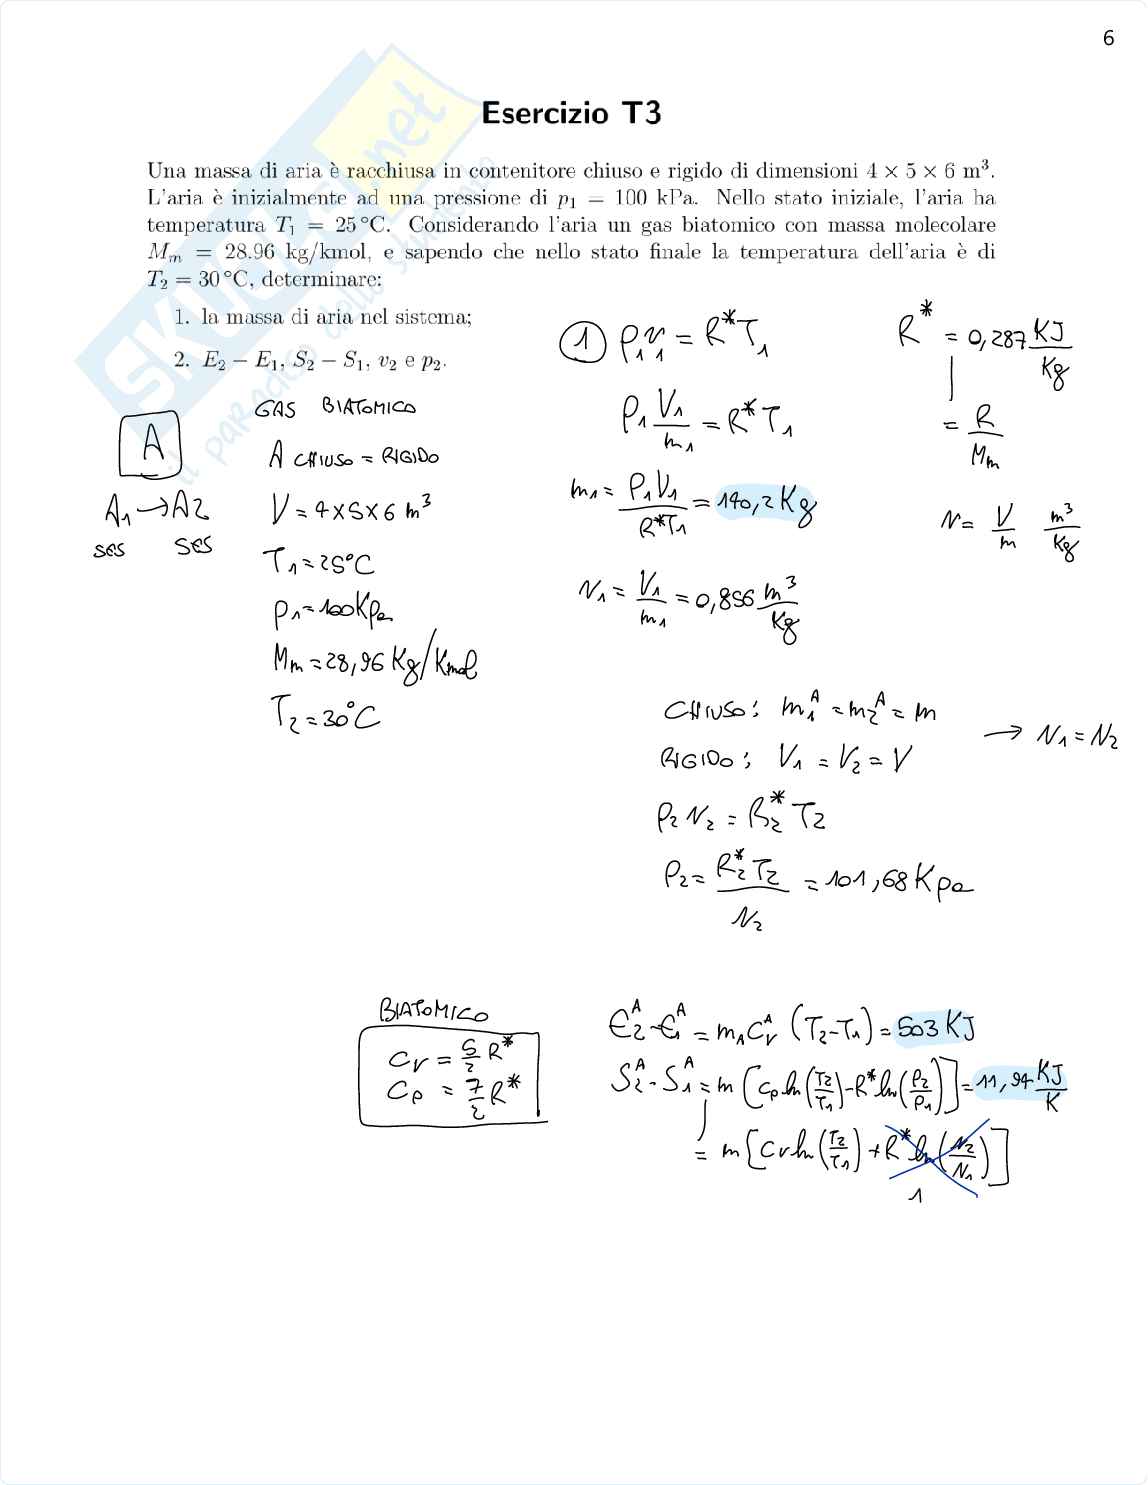 6
Esercizio T3
Una massa di aria è racchiusa in contenitore chiuso e rigido di dimensioni 4 × 5 × 6 m³.
L'aria è inizialmente ad una pressione di p₁ = 100 kPa. Nello stato iniziale, l'aria ha
temperatura T₁ = 25 °C. Considerando l'aria un gas biatomico con massa molecolare
Mₘ = 28.96 kg/kmol, e sapendo che nello stato finale la temperatura dell'aria è di
T₂ = 30 °C, determinare:
1. la massa di aria nel sistema;
2. E₂ − E₁, S₂ − S₁, v₂ e p₂.
SKUOLA.net
il paradiso dello studente
GAS BIATOMICO
A
A CHIUSO = RIGIDO
A₁ → A₂
SES SES
V = 4×5×6 m³
T₁ = 25°C
p₁ = 100 kPa
Mm = 28,96 Kg/Kmol
T₂ = 30°C
① p₁v₁ = R*T₁
p₁ V₁/m₁ = R*T₁
m₁ = p₁V₁/R*T₁ = 140,2 Kg
v₁ = V₁/m₁ = 0,856 m³/Kg
R* = 0,287 KJ/Kg
= R/Mm
v = V/m m³/Kg
CHIUSO: m₁ᴬ = m₂ᴬ = m
RIGIDO: V₁ = V₂ = V
→ v₁ = v₂
p₂ v₂ = R₂* T₂
p₂ = R₂* T₂/v₂ = 101,68 Kpa
BIATOMICO
Cv = 5/2 R*
Cp = 7/2 R*
E₂ᴬ - E₁ᴬ = m_A C_vᴬ (T₂-T₁) = 503 KJ
S₂ᴬ - S₁ᴬ = m [Cp ln(T₂/T₁) - R* ln(p₂/p₁)] = 11,94 KJ/K
= m [Cv ln(T₂/T₁) + R* ln(v₂/v₁)]
1